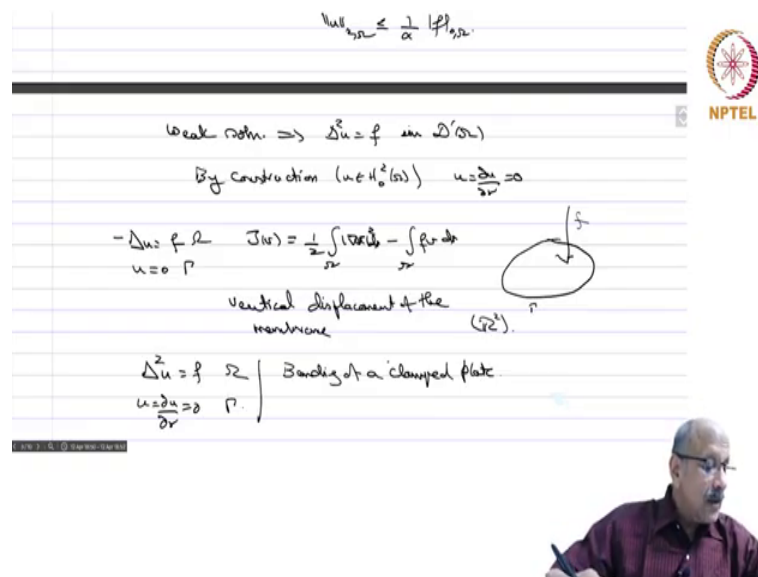 ‖u‖₂,Ω ≤ 1/α |f|₀,Ω.
NPTEL
Weak soln. ⇒ Δ²u = f in D'(Ω)
By construction (u ∈ H₀²(Ω)) u = ∂u/∂ν = 0
-Δu = f Ω J(v) = 1/2 ∫_Ω |∇v|² dx - ∫_Ω fv dx
u = 0 Γ
f
Γ
vertical displacement of the
membrane (ℝ²).
Δ²u = f Ω | Bending of a clamped plate.
u = ∂u/∂ν = 0 Γ.